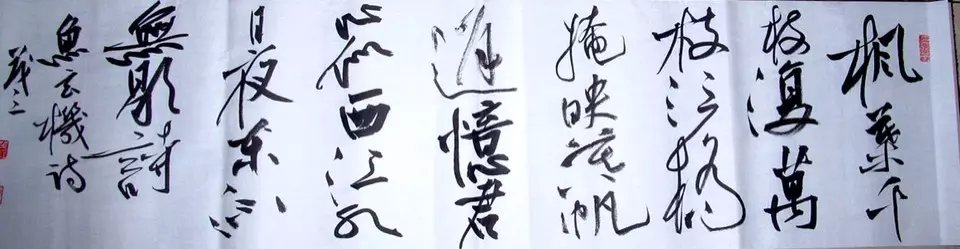 楓葉千
枝復萬
枝江橋
掩映暮帆
遲憶君
心似西江水
日夜東流
無歇時
魚玄機詩